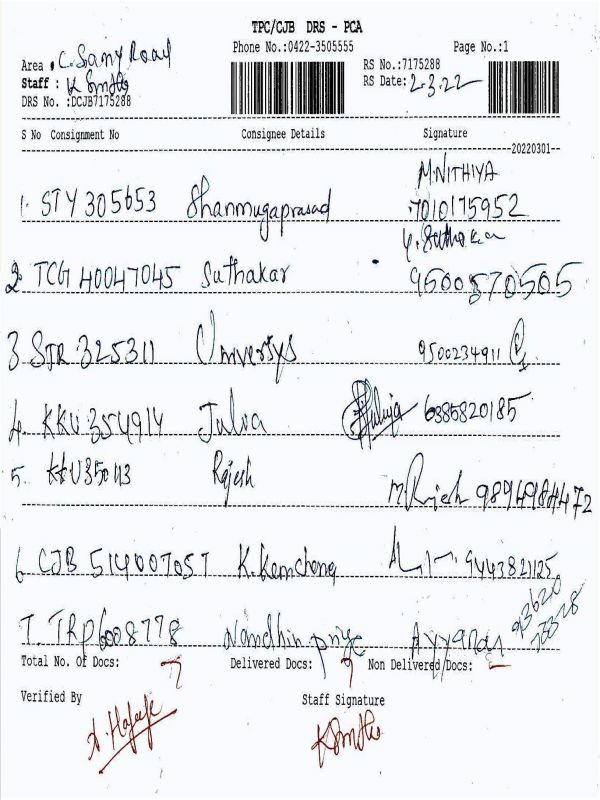 TPC/CJB DRS - PCA
Phone No.:0422-3505555 Page No.:1
Area : C. Samy Road RS No.:7175288
Staff : RS Date: 2.3.22
DRS No. :DCJB7175288
S No Consignment No Consignee Details Signature
20220301
M.NITHIYA
1. STY 305653 Shanmugaprasad 7010175952
Suthakar
2. TCG 40047045 Suthakar 9500570505
3 STR 325311 Universys 9500234911
4. KKU 354914 Julia 6385820185
5. KKU35043 Rajesh M. Rajesh 9894984472
6 CJB 514007057 K. 9443821125
7. TRP6008778 Nandhin priye Ayyanar 93620 78328
Total No. Of Docs: 7 Delivered Docs: 7 Non Delivered Docs: -
Verified By Staff Signature